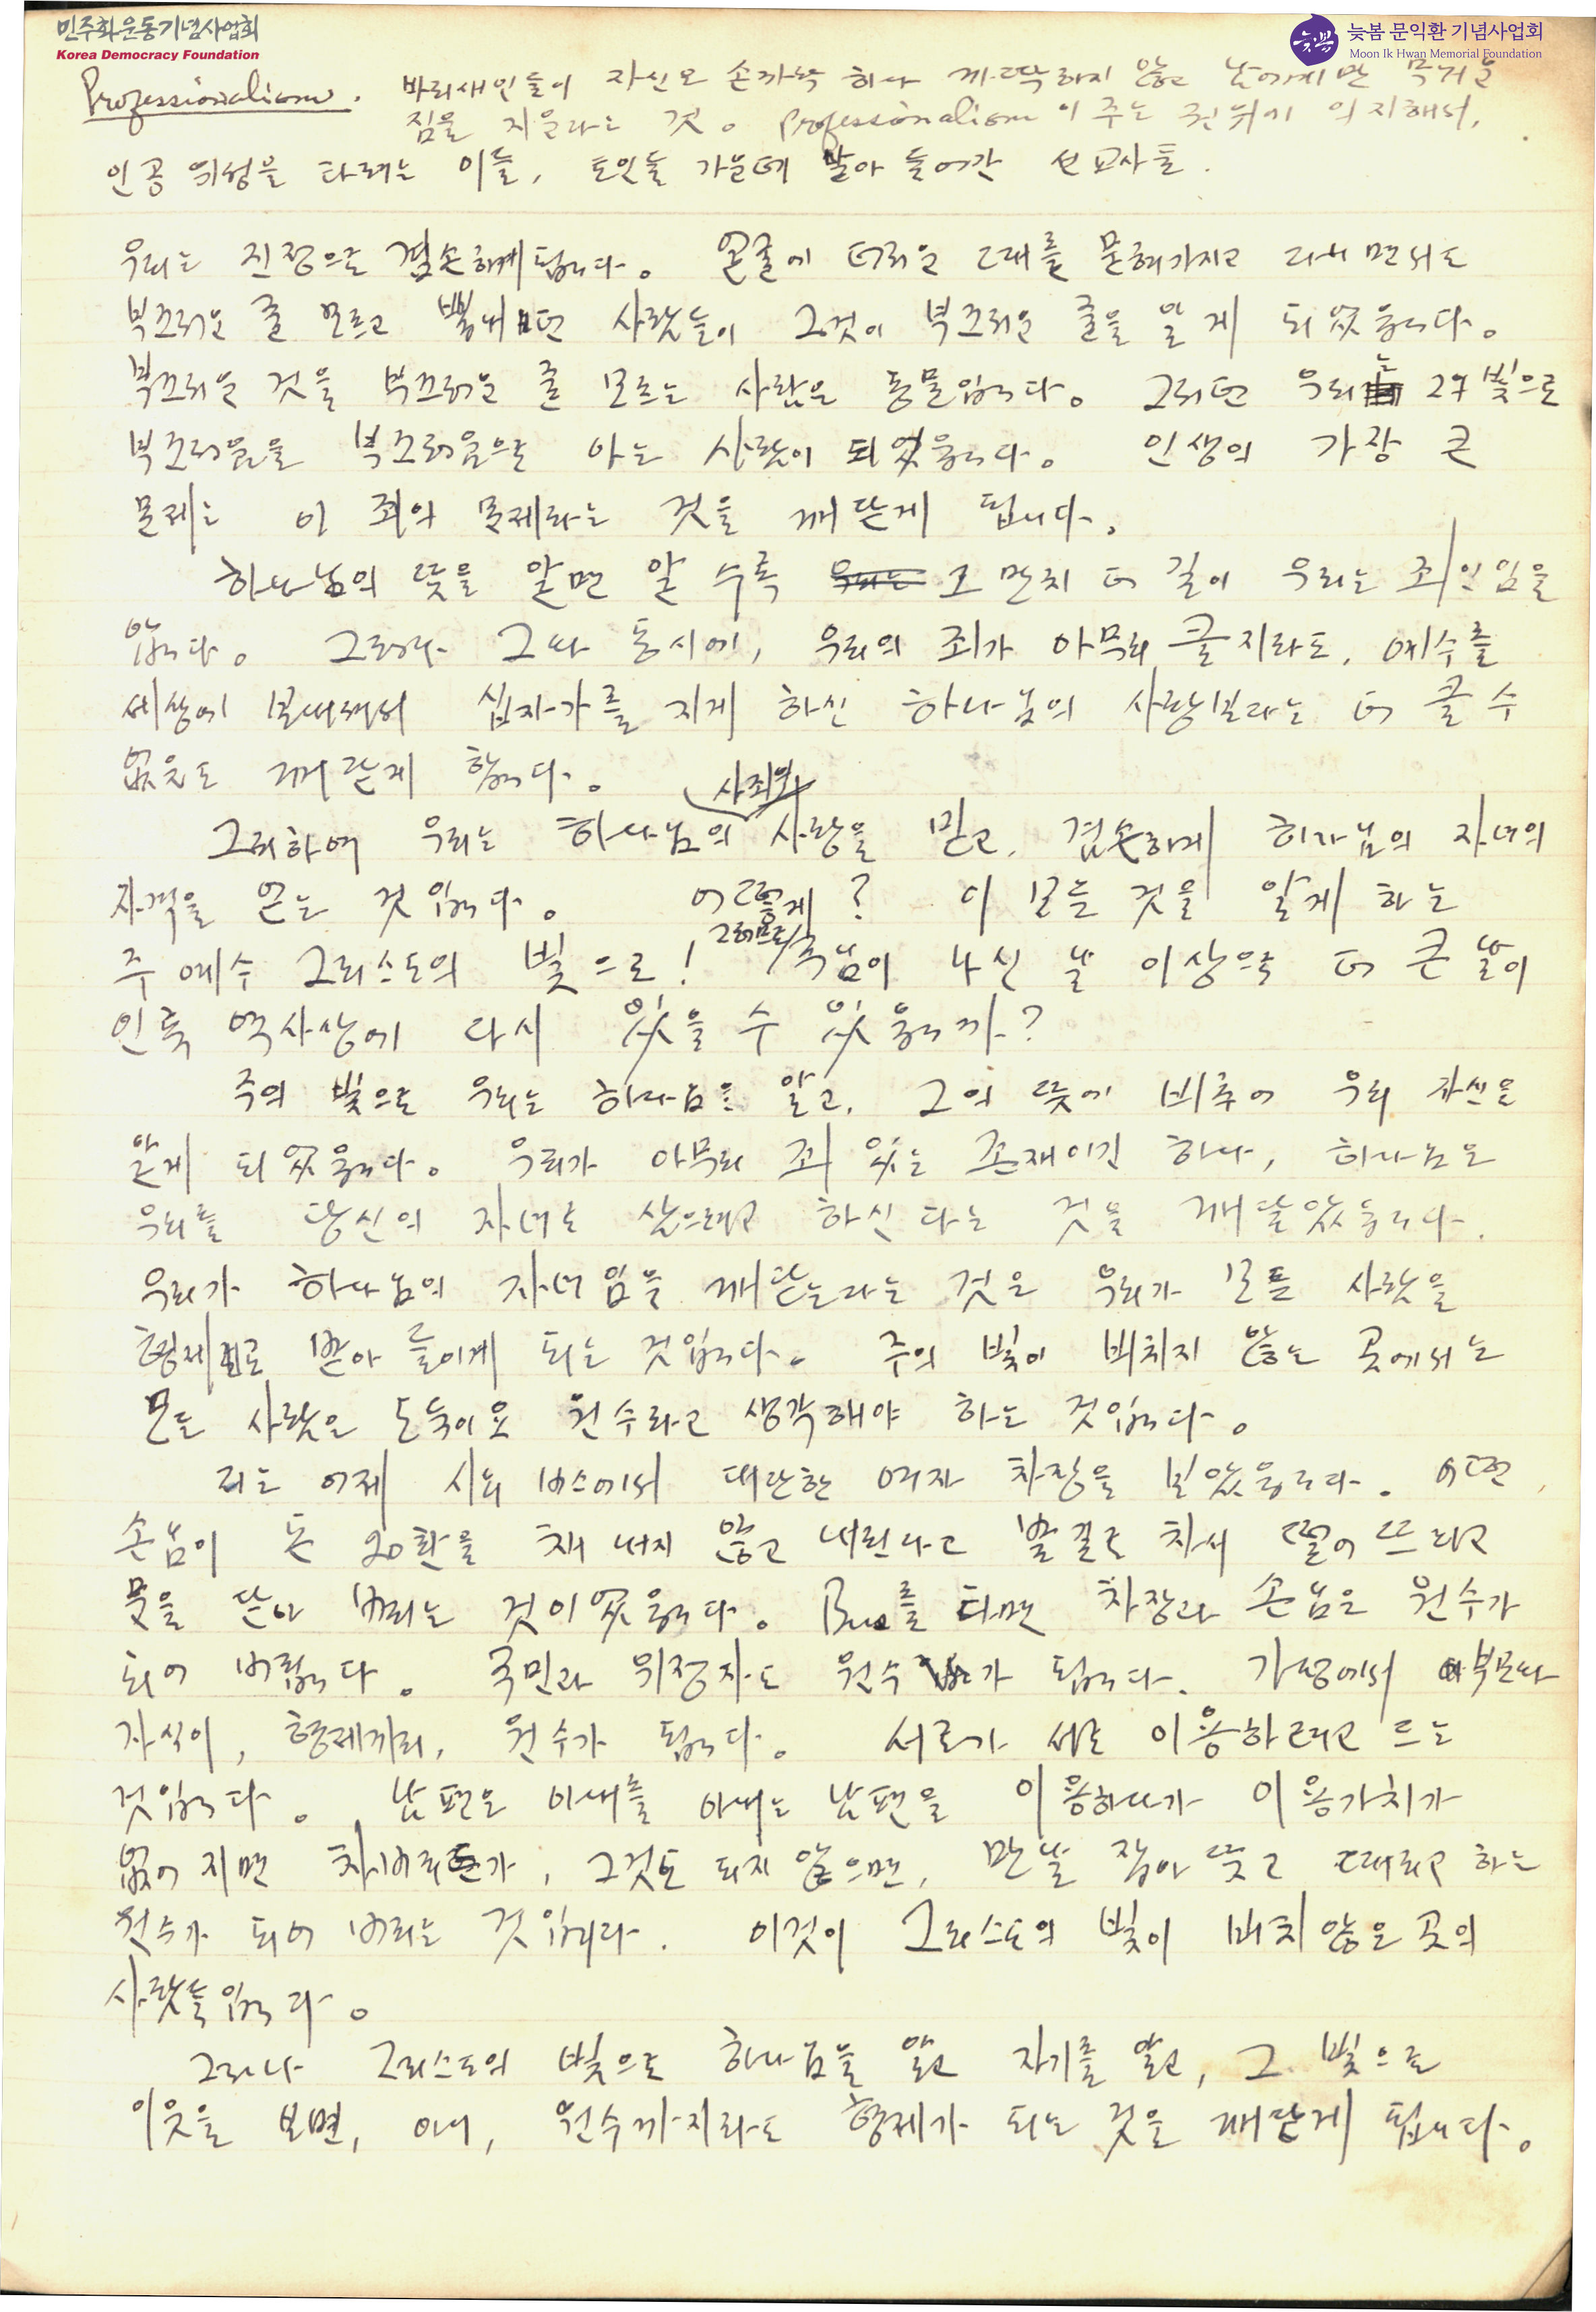 민주화운동기념사업회
Korea Democracy Foundation
늦봄
늦봄 문익환 기념사업회
Moon Ik Hwan Memorial Foundation
Professionalism. 바리새인들이 자신은 손까락 하나 까딱하지 않고 남에게만 무거운
짐을 지운다는 것。 Professionalism이 주는 권위에 의지해서,
인공위성을 타려는 이들, 토인들 가운데 날아 들어간 선교사들.
우리는 진정으로 겸손하게 됩니다。 얼굴에 더러운 그대를 묻혀가지고 다니면서도
부끄러운 줄 모르고 뽐내던 사람들이 그것이 부끄러운 줄을 알게 되었읍니다。
부끄러운 것을 부끄러운 줄 모르는 사람은 동물입니다。 그러던 우리는 그 빛으로
부끄러움을 부끄러움으로 아는 사람이 되었읍니다。 인생의 가장 큰
문제는 이 죄의 문제라는 것을 깨닫게 됩니다.
하나님의 뜻을 알면 알 수록 고만치 더 깊이 우리는 죄인임을
압니다。 그러나 그와 동시에, 우리의 죄가 아무리 클지라도, 예수를
세상에 보내셔서 십자가를 지게 하신 하나님의 사랑보다는 더 클 수
없음도 깨닫게 합니다。
사죄의
그리하여 우리는 하나님의 사랑을 믿고, 겸손하게 하나님의 자녀의
자격을 얻는 것입니다。 어떻게? 이 모든 것을 알게 하는
주 예수 그리스도의 빛으로! 그러므로 주님이 나신 날 이상으로 더 큰 날이
인류 역사상에 다시 있을 수 있읍니까?
주의 빛으로 우리는 하나님을 알고, 그의 뜻에 비추어 우리 자신을
알게 되었읍니다。 우리가 아무리 죄 있는 존재이긴 하나, 하나님은
우리를 당신의 자녀로 삼으려고 하신다는 것을 깨달았읍니다.
우리가 하나님의 자녀임을 깨닫는다는 것은 우리가 모든 사람을
형제로 받아 들이게 되는 것입니다。 주의 빛이 비치지 않는 곳에서는
모든 사람은 도둑이요 원수라고 생각해야 하는 것입니다。
저는 어제 시내 버스에서 대단한 여자 차장을 보았읍니다. 어떤
손님이 돈 20환을 채 내지 않고 내린다고 발길로 차서 떨어뜨리고
문을 닫아 버리는 것이었읍니다。 Bus를 타면 차장과 손님은 원수가
되어 버립니다。 국민과 위정자도 원수가 됩니다. 가정에서 부모와
자식이, 형제끼리, 원수가 됩니다。 서로가 서로 이용하려고 드는
것입니다。 남편은 아내를 아내는 남편을 이용하다가 이용가치가
없어지면 차버리든가, 그것도 되지 않으면, 만날 잡아 뜯고 때리고 하는
원수가 되어 버리는 것입니다. 이것이 그리스도의 빛이 비치지 않은 곳의
사람들입니다。
그러나 그리스도의 빛으로 하나님을 알고 자기를 알고, 그 빛으로
이웃을 보면, 아니, 원수까지라도 형제가 되는 것을 깨닫게 됩니다。